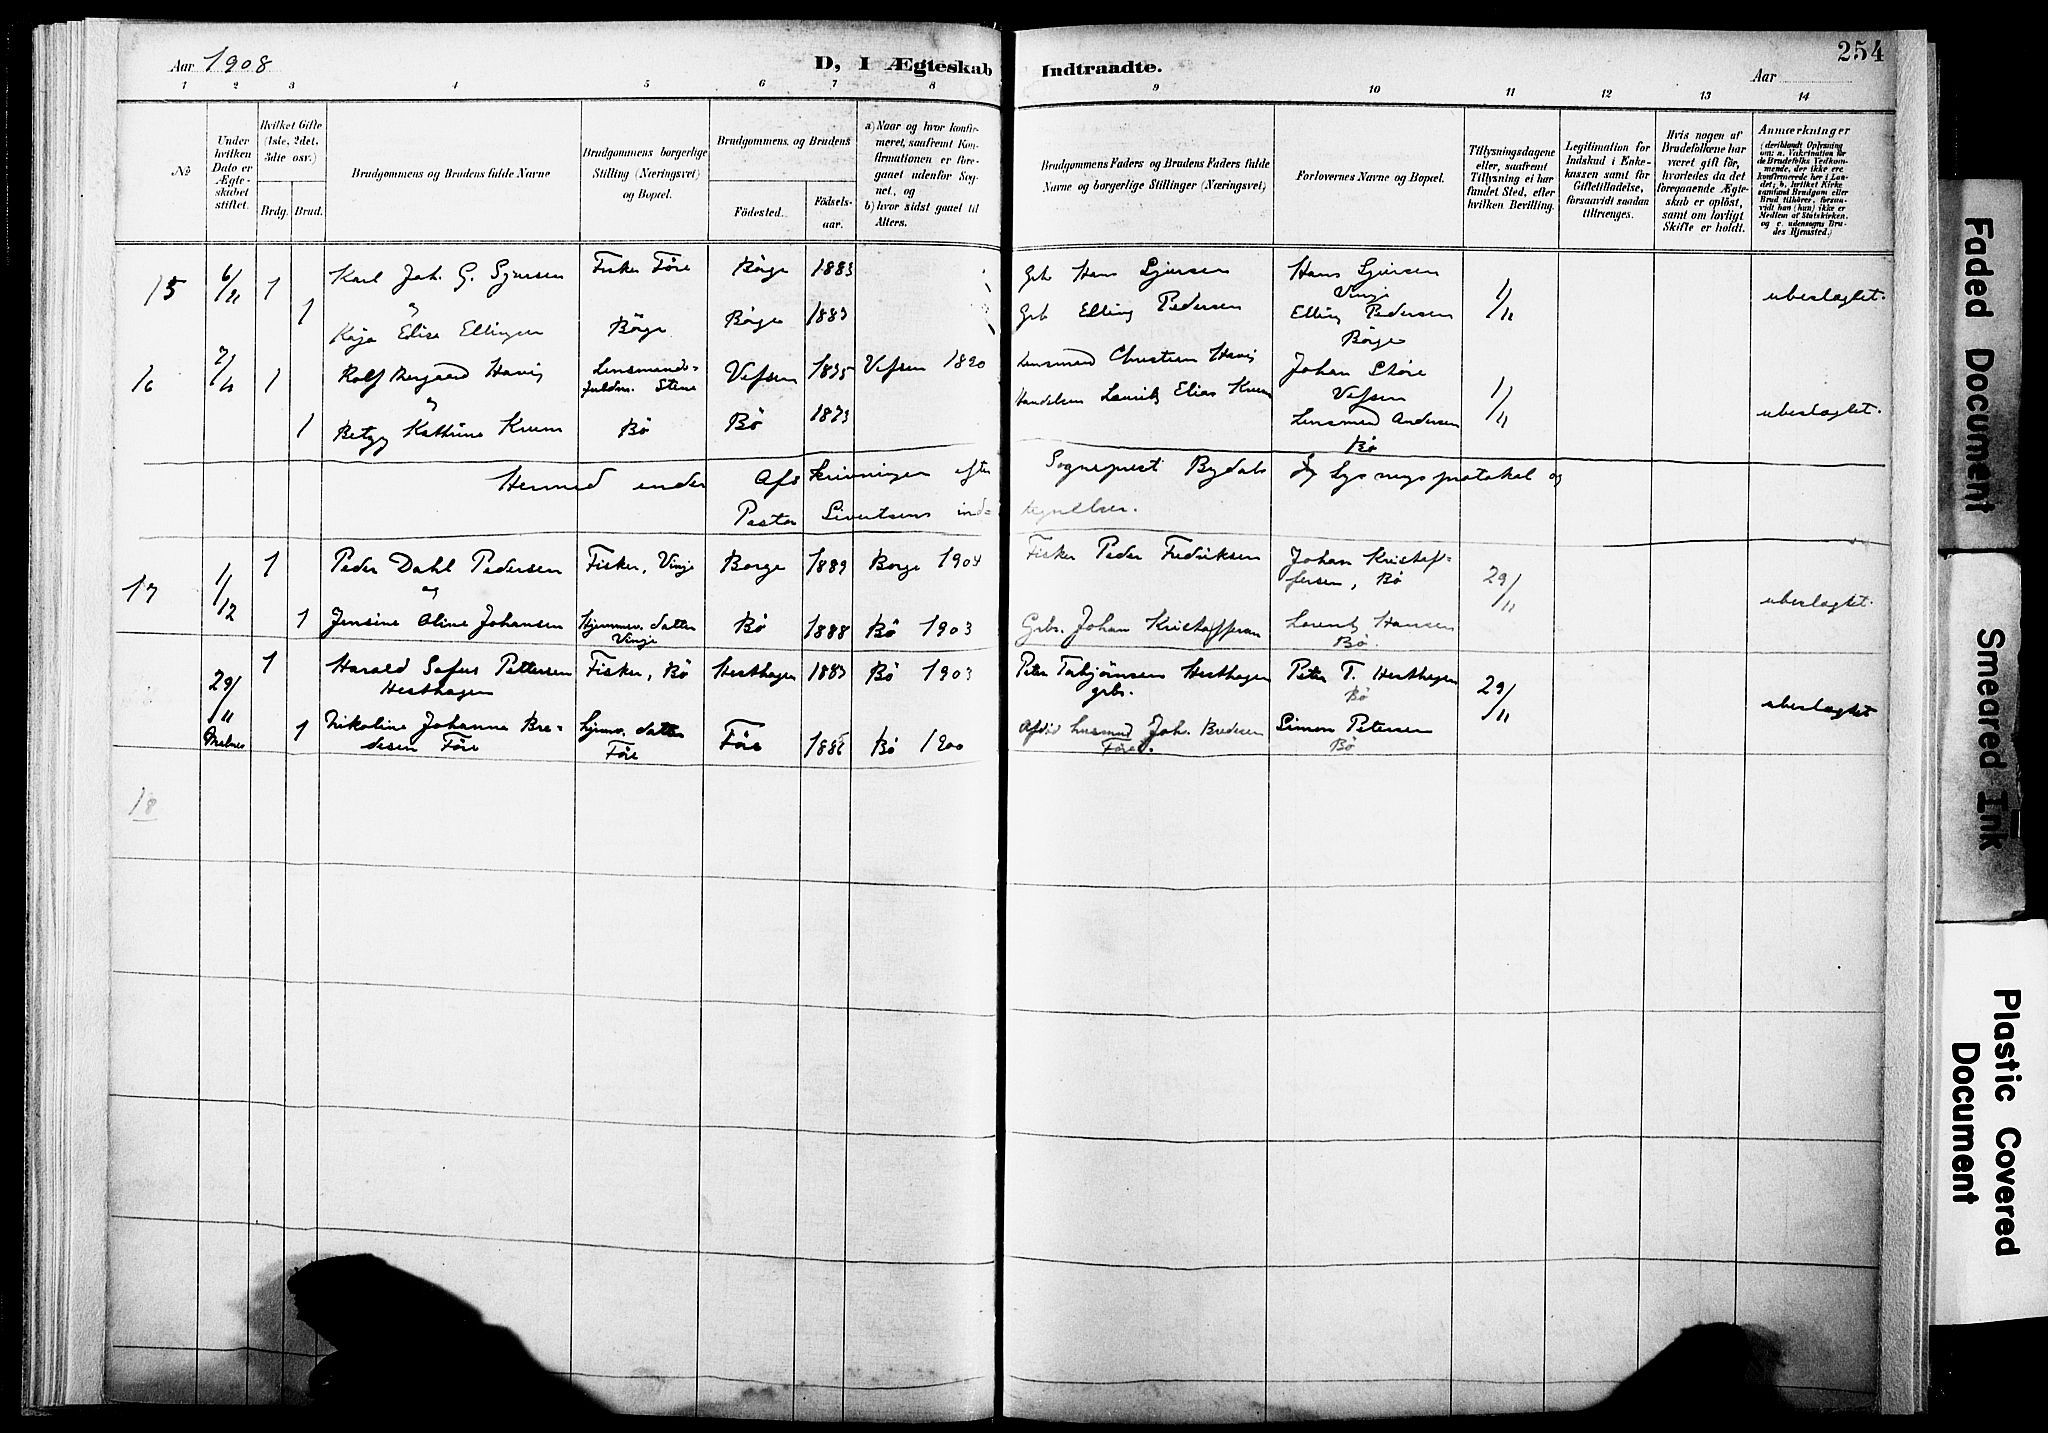 Aar 1908
D, I Ægteskab
Indtraadte.
Aar
254
1 2 3 4 5 6 7 8 9 10 11 12 13 14
No
Under hvilken Dato er Ægteskabet stiftet.
Hvilket Gifte (1ste, 2det, 3die osv.)
Brdg. Brud.
Brudgommens og Brudens fulde Navne
Brudgommens borgerlige Stilling (Næringsvei) og Bopæl.
Brudgommens og Brudens
Födested.
Födselsaar.
a) Naar og hvor konfirmeret, saafremt Konfirmationen er foregaaet udenfor Sognet, og
b) hvor sidst gaaet til Alters.
Brudgommens Faders og Brudens Faders fulde Navne og borgerlige Stillinger (Næringsvei)
Forlovernes Navne og Bopæl.
Tillysningsdagene eller, saafremt Tillysning ei har fundet Sted, efter hvilken Bevilling.
Legitimation for Indskud i Enkekassen samt for Giftetilladelse, forsaavidt saadan tiltrænges.
Hvis nogen af Brudefolkene har været gift før, hvorledes da det foregaaende Ægteskab er oplöst, samt om lovligt Skifte er holdt.
Anmærkninger
(deriblandt Oplysning om: a. Vakcination for de Brudefolks Vedkommende, der ikke ere konfirmerede her i Landet; b. hvilket Kirkesamfund Brudgom eller Brud tilhörer, forsaavidt han (hun) ikke er Medlem af Statskirken, og c. udensogns Brudes Hjemsted.)
15 6/11 1 Karl Joh. G. Sjursen Fisker Före Börge 1883 Grb Hans Sjursen Hans Sjursen Vinje 1/11 ubeslægtet.
og
1 Kaja Elise Ellingsen Börge Börge 1883 Grb Elling Pedersen Elling Pedersen Börge
16 7/11 1 Rolf Havig Lensmandsfuldm. Stene Vefsen Vefsen 1890 Lensmand Christian Havig Johan Vefsen 1/11 ubeslægtet.
og
1 Betzy Kathrine Krum Bö Bö 1873 Elias Krum Lensmand Andersen Bö
Hermed ender Afskrivningen efter Sogneprest Bydals Lysningsprotokol og
Pastor Sivertsens indtegnelser.
17 1/12 1 Peder Dahl Pedersen Fisker, Vinje Borge 1889 Borge 1904 Fisker Peder Fredriksen Johan Kristoffersen, Bö 29/11 ubeslægtet.
og
1 Jensine Oline Johansen Hjemmev. datter Vinje Bö 1888 Bö 1903 Grbr. Johan Kristoffersen Lorentz Hansen Bö.
29/11 1 Harald Sofus Pettersen Hesthagen Fisker, Bö Hesthagen 1883 Bö 1903 Peter Torbjörnsen Hesthagen grbr. Peter T. Hesthagen Bö 29/11 ubeslægtet
1 Nikoline Johanne Bredesen Före hjmv. datter Före Före Bö 1900 Afdöd husmand Joh. Bredesen Före. Simon Petersen Bö
18
Faded Document
Smeared Ink
Plastic Covered Document